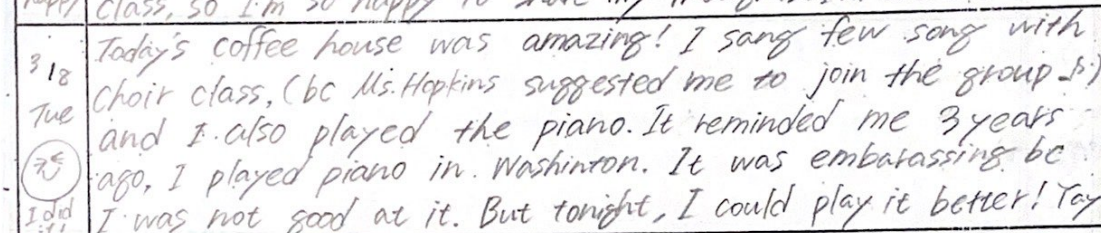 happy class, so I'm so happy to share my
3/8 Today's coffee house was amazing! I sang few song with
Tue choir class, (bc Ms. Hopkins suggested me to join the group :)
and I also played the piano. It reminded me 3 years
ago, I played piano in Washinton. It was embarassing bc
I did I was not good at it. But tonight, I could play it better! Yay
it!